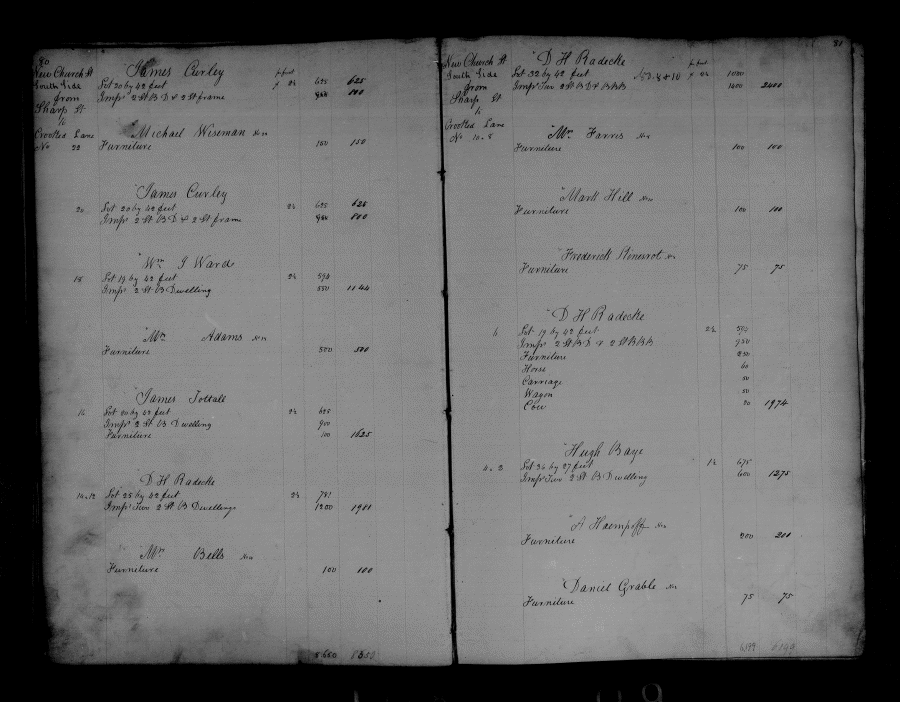 80
New Church St
South Side
from
Sharp St
to
Crooked Lane
No 22
James Curley
p foot
Lot 20 by 42 feet 2½ 625 625
Impr 2 St B D & 2 St frame 800
Michael Wiseman
Furniture 150 150
James Curley
20 Lot 20 by 42 feet 2½ 625 625
Impr 2 St B D & 2 St frame 800
Wm J Ward
18 Lot 19 by 42 feet 2½ 594
Impr 2 St B Dwelling 550 1144
Mrs Adams
Furniture 500 500
James Tottall
16 Lot 20 by 42 feet 2½ 625
Impr 2 St B Dwelling 900
Furniture 100 1625
D H Radecke
14 & 12 Lot 25 by 42 feet 2½ 781
Impr Two 2 St B Dwellings 1200 1981
Mrs Bells
Furniture 100 100
81
New Church St
South Side
from
Sharp St
to
Crooked Lane
No 10 & 8
D H Radecke
p foot
Lot 32 by 42 feet No 8 & 10 2½ 1000
Impr Two 2 St B D & B B B 1400 2400
Mr Harris
Furniture 100 100
Mark Hill
Furniture 100 100
Frederick
Furniture 75 75
D H Radecke
6 Lot 19 by 42 feet 2½
Impr 2 St B D & 2 St B B B 950
Furniture 250
Horse 60
Carriage 50
Wagon 50
Cow 20 1974
Hugh Baye
4 & 2 Lot 36 by 27 feet 675
Impr Two 2 St B Dwelling 600 1275
Furniture 200 200
Daniel Grable
Furniture 75 75